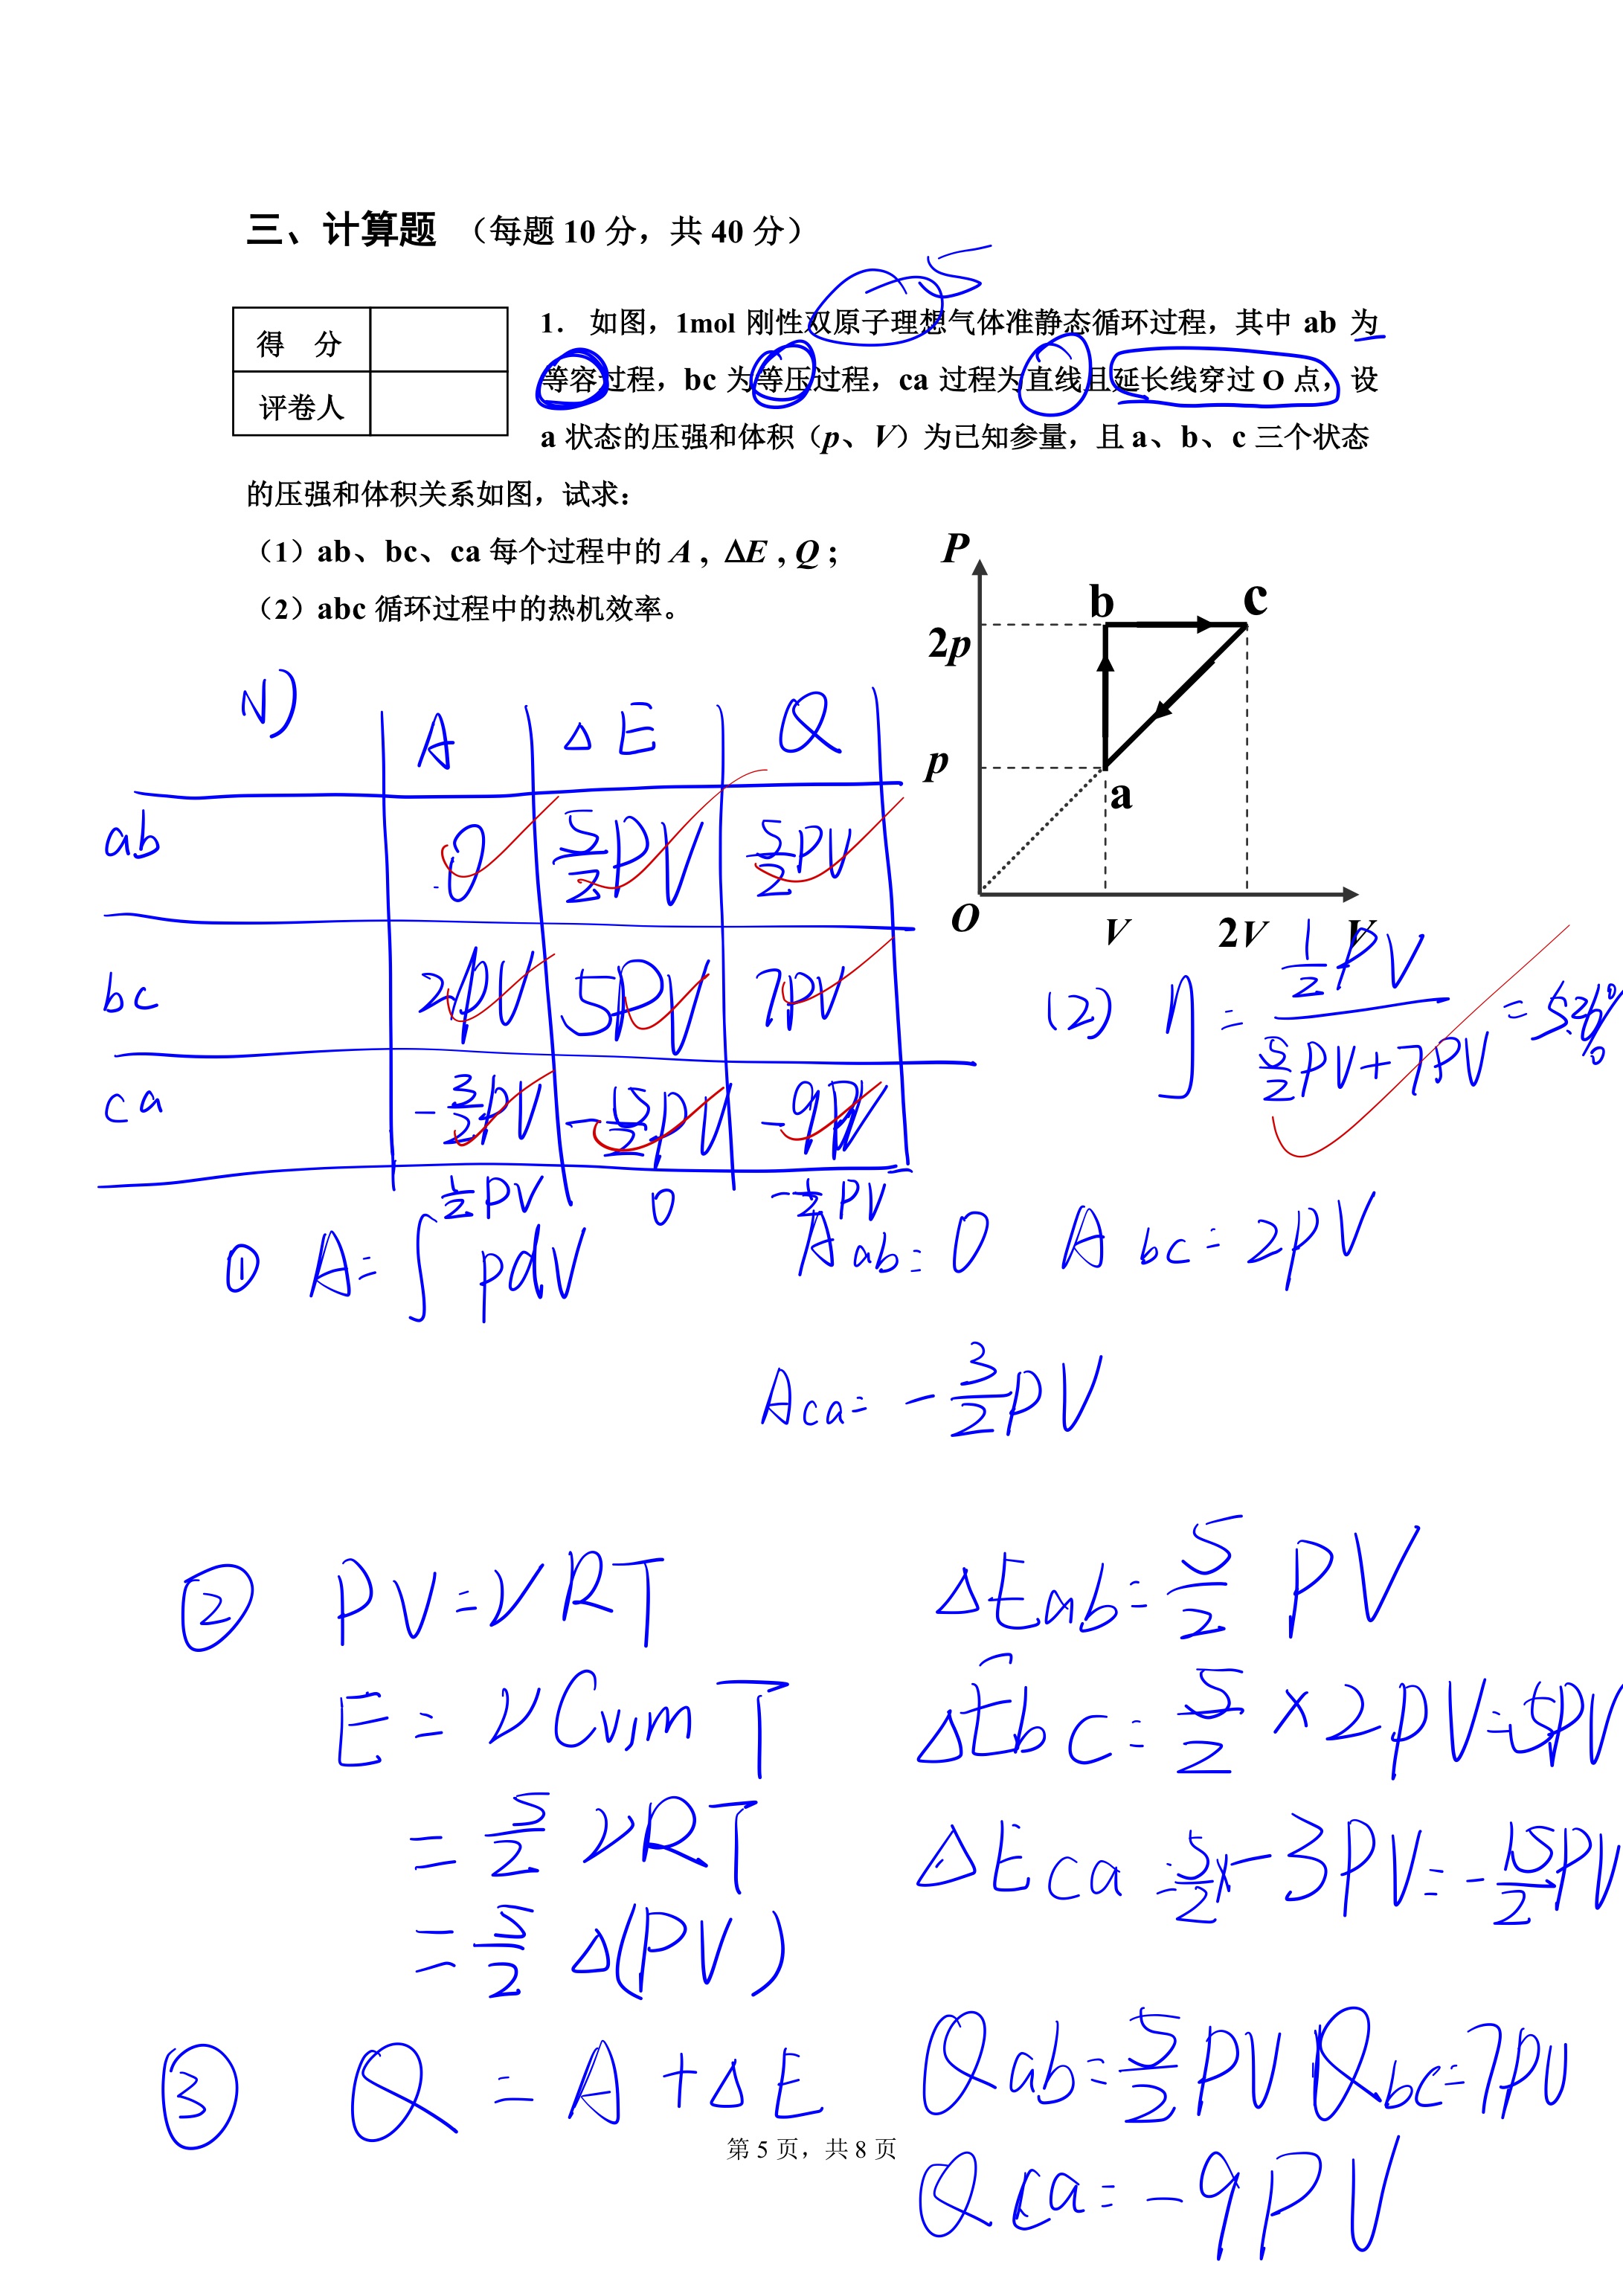 三、计算题 （每题 10 分，共 40 分）
5
得 分
评卷人
1． 如图，1mol 刚性双原子理想气体准静态循环过程，其中 ab 为
等容过程，bc 为等压过程，ca 过程为直线且延长线穿过 O 点，设
a 状态的压强和体积（p、V）为已知参量，且 a、b、c 三个状态
的压强和体积关系如图，试求：
（1）ab、bc、ca 每个过程中的 A , ΔE , Q ;
（2）abc 循环过程中的热机效率。
P
b c
2p
p
a
O V 2V V
(1)
A ΔE Q
ab 0 5/2 PV 5/2 PV
bc 2PV 5PV 7PV
ca -3/2 PV -15/2 PV -9PV
1/2 PV 0 -1/2 PV
(2) η = 1/2 PV / (5/2 PV + 7PV) = 5.26%
① A = ∫ pdV Aab = 0 Abc = 2PV
Aca = -3/2 PV
② PV = νRT ΔEab = 5/2 PV
E = νCv,m T ΔEbc = 5/2 × 2PV = 5PV
= 5/2 νRT ΔEca = 5/2 × -3PV = -15/2 PV
= 5/2 Δ(PV)
③ Q = A + ΔE Qab = 5/2 PV Qbc = 7PV
第 5 页，共 8 页
Qca = -9PV